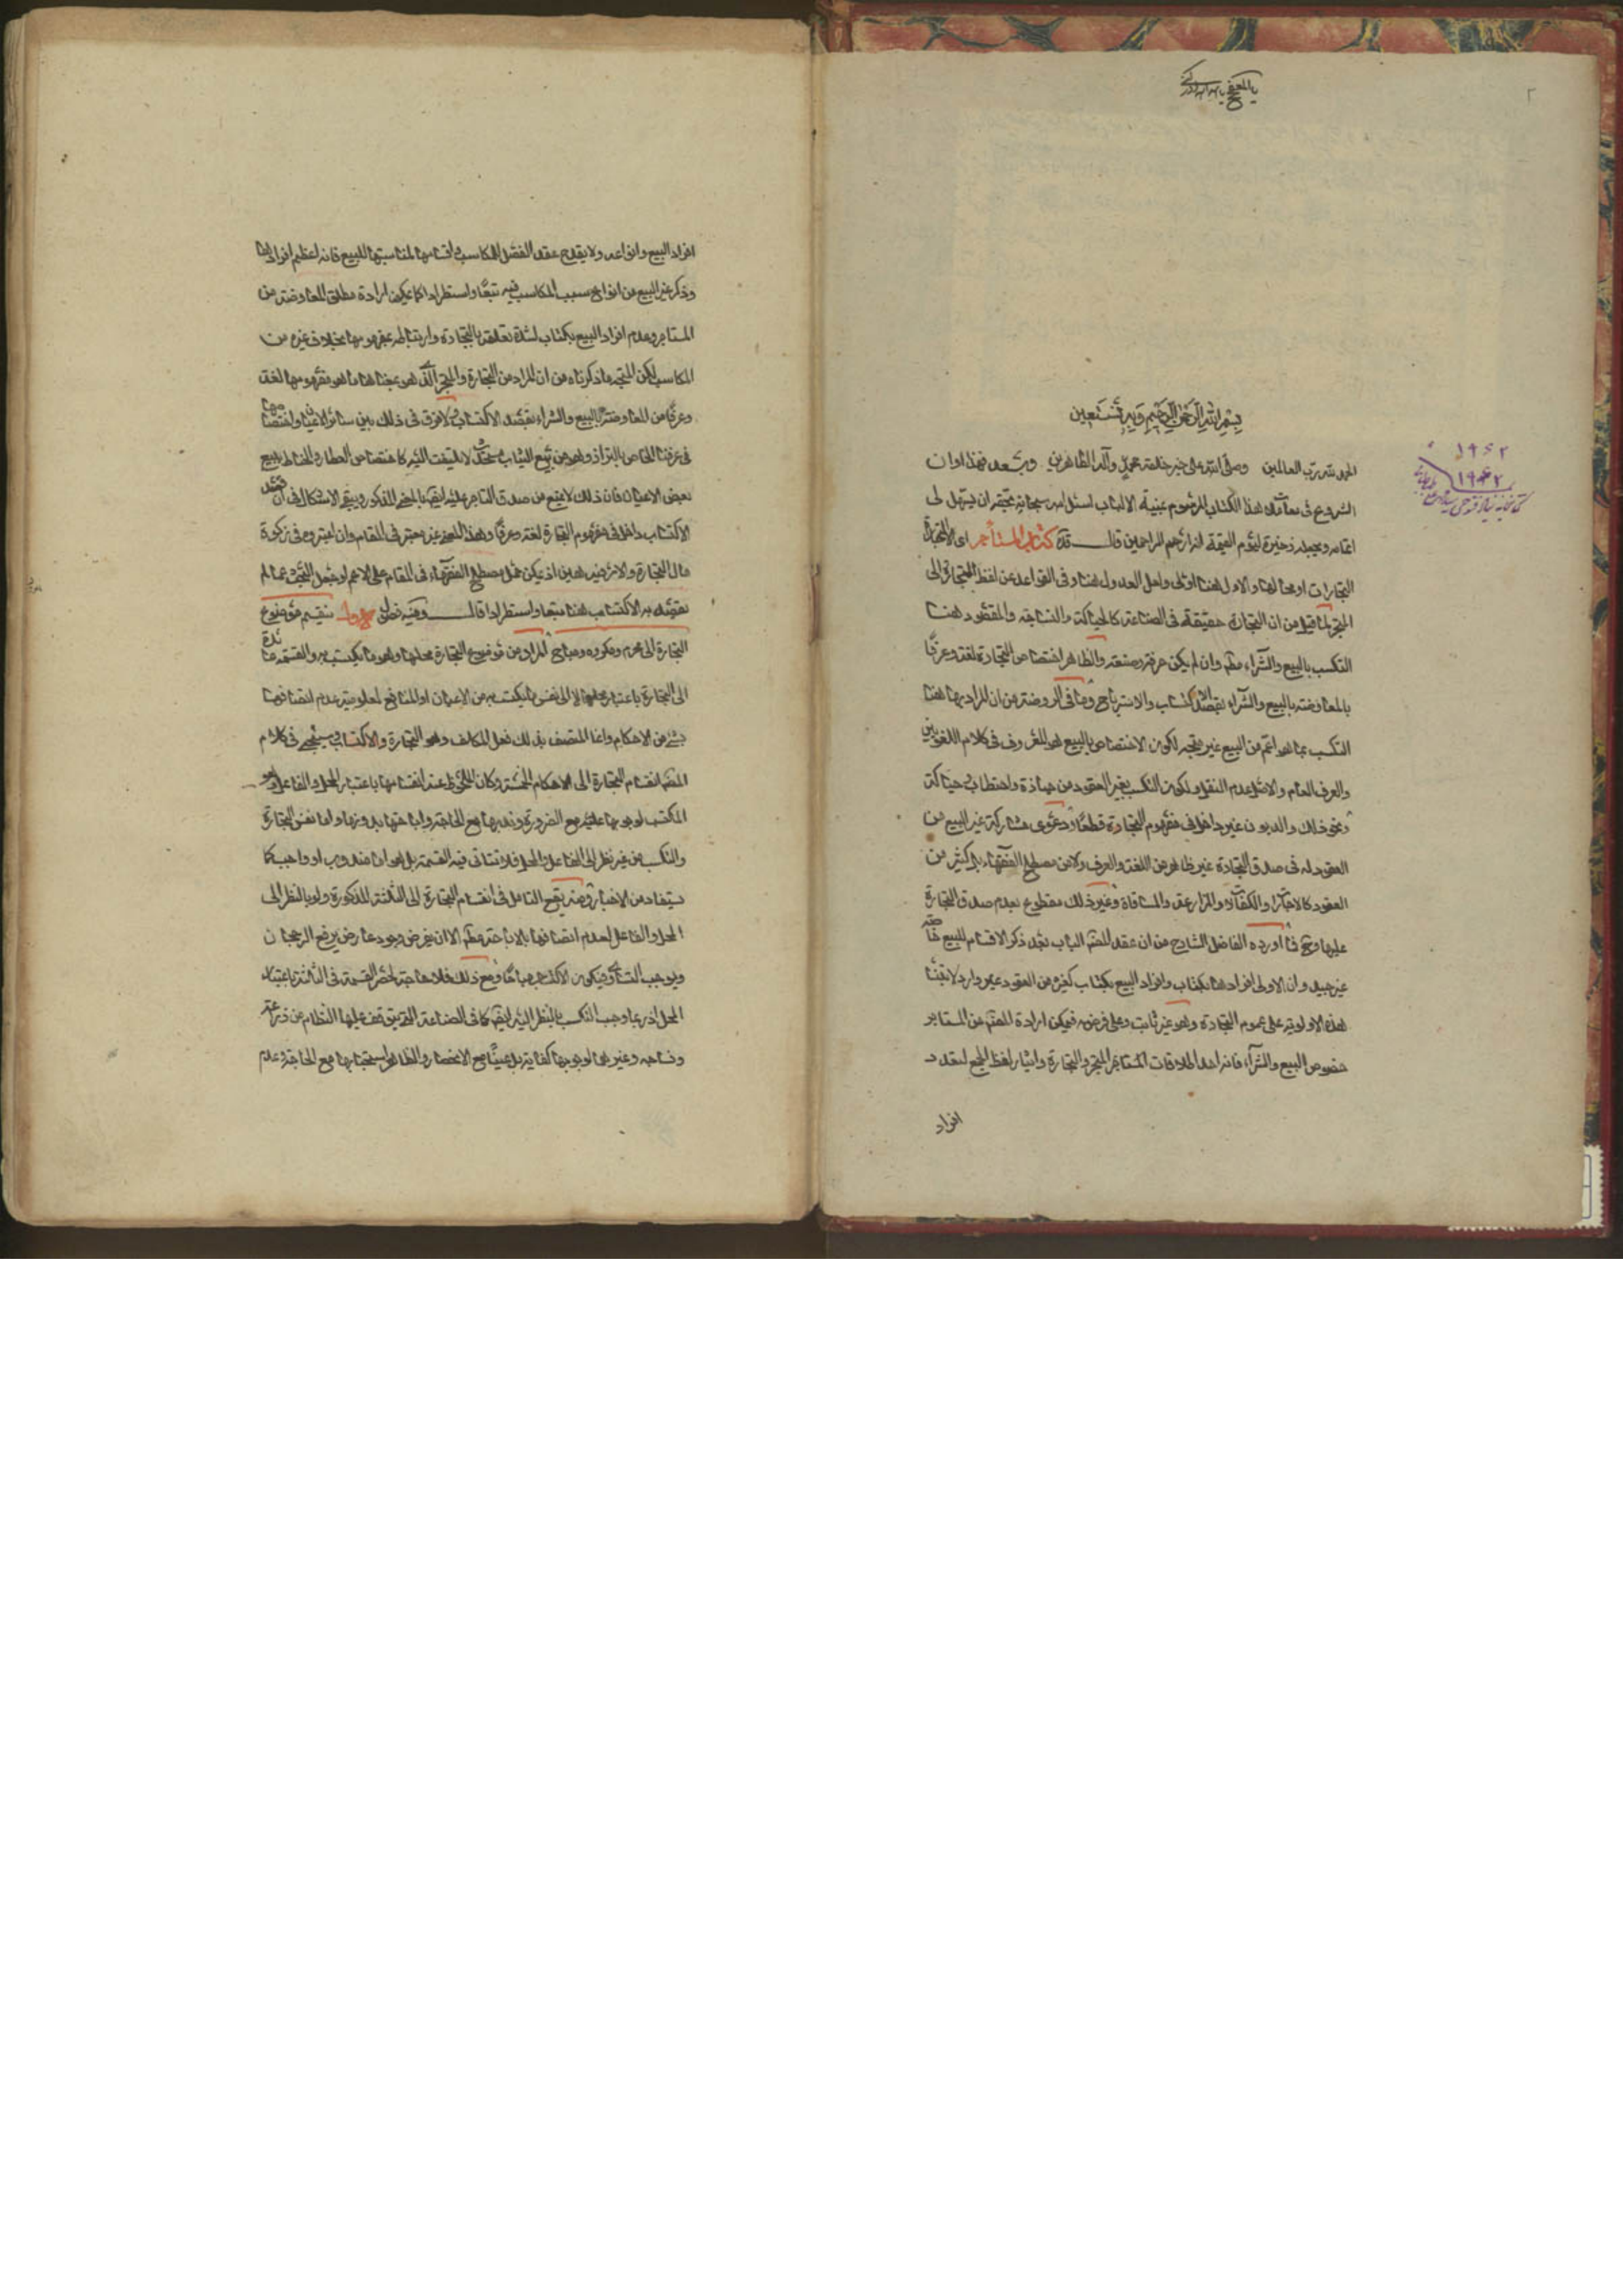 ٢
بسم الله الرحمن الرحيم وبه نستعين
الحمد لله رب العالمين وصلى الله على خير خلقه محمد وآله الطاهرين وبعد فهذا اوان
الشروع في هذا الكتاب الموسوم بمنية الالباب اسئل الله سبحانه ان يسهل لى
اتمامه ويجعله ذخيرة ليوم القيمة انه ارحم الراحمين قال قده كتاب المتاجر اى
التجارات او محالها والاول هنا اولى ولعل العدول هنا وفى القواعد عن لفظ التجارة الى
المتجر لما قيل من ان التجارة حقيقة فى الصناعة كالحياكة والنساجة والمقصود هنا
التكسب بالبيع والشراء مطم وان لم يكن حرفة وصنعة والظاهر اختصاص التجارة لغة وعرفا
بالمعاوضة بالبيع والشراء بقصد الاكتساب والاسترباح وما فى الروضة من ان المراد بها هنا
التكسب بما هو اعم من البيع غير متجه لكون الاختصاص بالبيع هو المعروف فى كلام اللغويين
والعرف العام والاصل عدم النقل ولكون التكسب بغير العقود من حيازة واحتطاب وحياكة
ونحو ذلك والديون غير داخل فى مفهوم التجارة قطعا ودعوى مشاركة غير البيع من
العقود له فى صدق التجارة غير ظاهر من اللغة والعرف ولا من مصطلح الفقهاء بل كثير من
العقود كالاجارة والكفالة والمزارعة والمساقاة وغير ذلك مقطوع بعدم صدق التجارة
عليها وح فما اورده الفاضل الشارح من ان عقد المصنف الباب بعد ذكر الاقسام للبيع خاصة
غير جيد وان الاولى افرادها بكتاب وافراد البيع بكتاب كغيره من العقود غير وارد لابتناء
هذه الاولوية على عموم التجارة وهو غير ثابت وعلى فرضه فيمكن ارادة المصنف من المتاجر
خصوص البيع والشراء فانه احد اطلاقات المتجر والتجارة وايثار لفظ الجمع لتعدد
افراد
١٩٤٢
١٩٤٢
افراد البيع وانواعه ولا يقدح عقد الفصل للمكاسب واقسامها لمناسبتها للبيع فانه اعظم افرادها
وذكر غير البيع من انواع سبب المكاسب فيه تبعا واستطرادا كما يمكن ارادة مطلق المعاوضة من
المتاجر وعدم افراد البيع بكتاب لشدة تعلقه بالتجارة وارتباطه بمفهومها بخلاف غيره من
المكاسب لكن المتجه ما ذكرناه من ان المراد من التجارة والمتجر الذى هو بمعناها ما هو مفهومها لغة
وعرفا من المعاوضة بالبيع والشراء بقصد الاكتساب ولا فرق فى ذلك بين سائر الاعيان واختصاصها
فى عرفنا الخاص بالبزاز وهو من يبيع الثياب لا يلتفت اليه كاختصاص العطار والحناط ببيع
بعض الاعيان فان ذلك لا يمنع من صدق التاجر عليه ايضا بالمعنى المذكور وبقى الاشكال فى ان قصد
الاكتساب داخل فى مفهوم التجارة لغة وعرفا وهذا القصد غير معتبر فى المقام وان اعتبروه فى زكوة
مال التجارة والامر هين اذ يمكن حمل مصطلح الفقهاء فى المقام على الاعم او جعل البحث عما لم
يقصد به الاكتساب هنا تبعا واستطرادا قال وفيه فصول الاول ينقسم موضوع
التجارة الى محرم ومكروه ومباح المراد من موضوع التجارة محلها وهو ما يكتسب به والقسمة عائدة
الى التجارة باعتبار محلها لا الى نفس ما يكتسب به من الاعيان او المنافع لمعلومية عدم اتصافهما
بشئ من الاحكام وانما المتصف بذلك فعل المكلف وهو التجارة والاكتساب وسيجئ فى كلام
المصنف انقسام التجارة الى الاحكام الخمسة وكان الملحوظ عند انقسامها باعتبار المحل والفاعل وهو
المكتسب لوجوبها عليه مع الضرورة وندبها مع الحاجة واباحتها بدونها واما نفس التجارة
والتكسب من غير نظر الى الفاعل والمحل فلا تتاتى فيه القسمة بل هو اما مندوب او واجب كما
يستفاد من الاخبار ومنه يقع التامل فى انقسام التجارة الى الثلثة المذكورة ولو بالنظر الى
المحل والفاعل لعدم اتصافها بالاباحة مطم الا ان يفرض وجود عارض يرفع الرجحان
ويوجب التساوى فيكون الاكتساب مباحا ومع ذلك فلا حاجة لحصر القسمة فى الثلثة باعتبار
المحل اذ ربما وجب التكسب بالنظر اليه ايضا كما فى الصناعة التى يتوقف عليها النظام من زراعة
ونساجة وغيرهما لوجوبها كفاية بل عينا مع الانحصار والظاهر استحبابها مع الحاجة وعدم